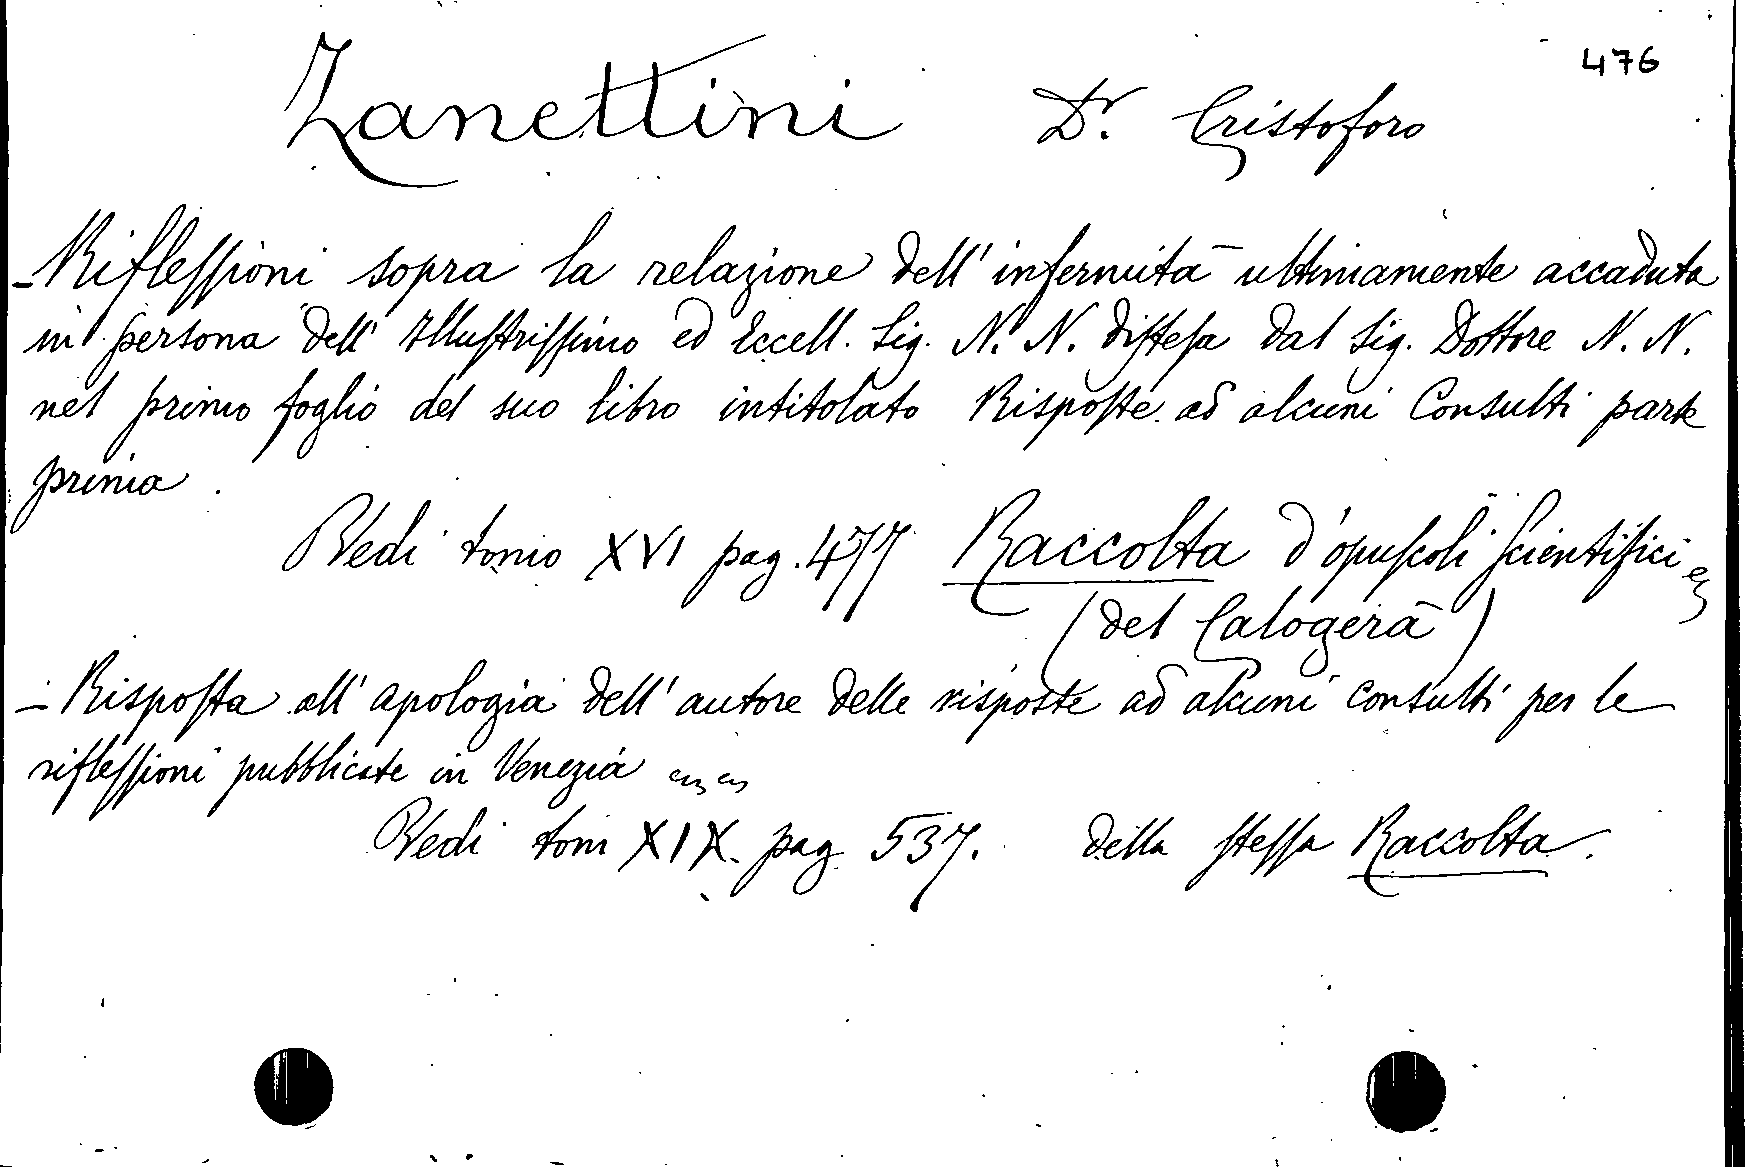 476
Zanettini Dr. Cristoforo
- Riflessioni sopra la relazione dell' infermità ultimamente accaduta
in persona dell' Illustrissimo ed Eccell. Sig. N. N. distesa dal Sig. Dottore N. N.
nel primo foglio del suo libro intitolato Risposte ad alcuni Consulti parte
prima.
Vedi tomo XVI pag. 477 Raccolta d'opuscoli scientifici
(del Calogerà)
- Risposta all' apologia dell' autore delle risposte ad alcuni consulti per le
riflessioni pubblicate in Venezia
Vedi tom XIX. pag 537. della stessa Raccolta.